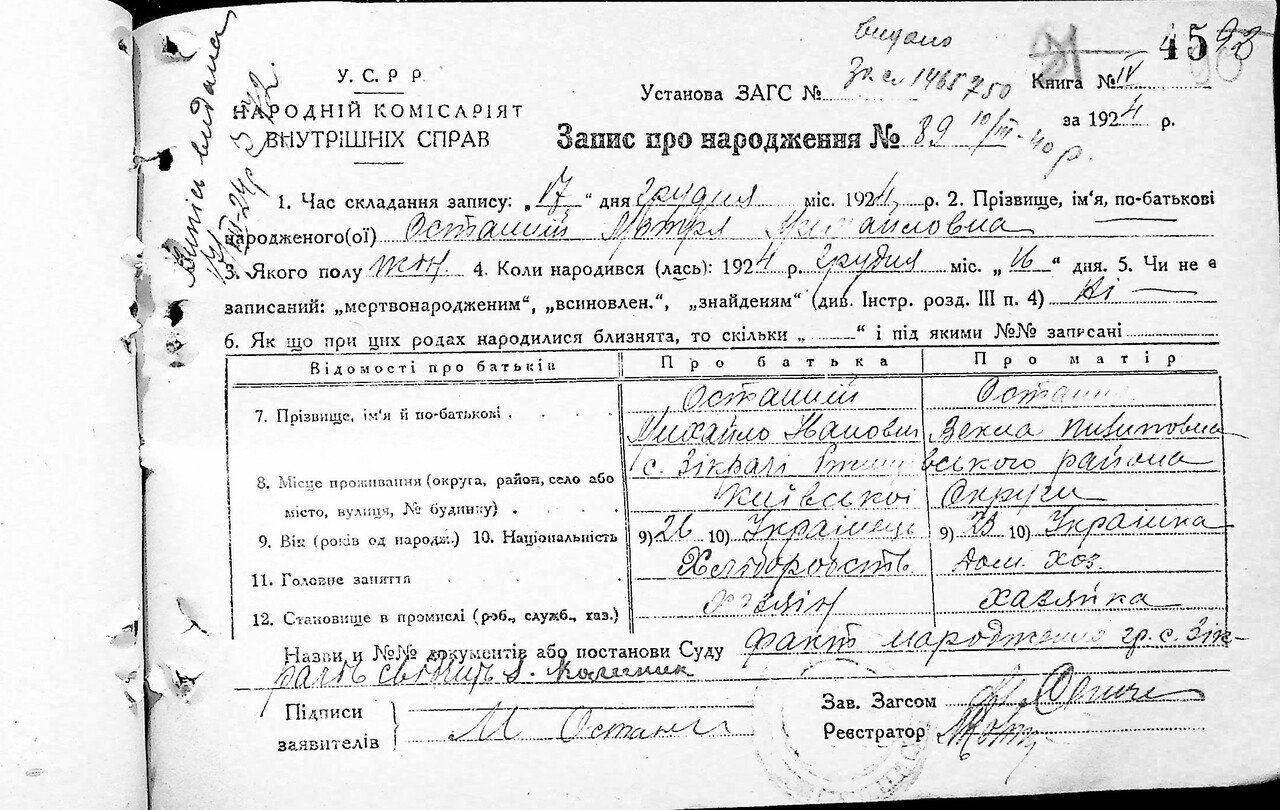 видано
45
У. С. Р Р.
НАРОДНІЙ КОМІСАРІЯТ
ВНУТРІШНІХ СПРАВ
Установа ЗАГС № Зк сл 1465750
Книга № IV
за 1924 р.
Запис про народження № 89 10/III - 40 р.
1. Час складання запису: „17“ дня грудня міс. 1924 р. 2. Прізвище, ім'я, по-батькові
народженого(ої) Останий Мотря Михайловна
3. Якого полу жін. 4. Коли народився (лась): 1924 р. грудня міс. „16“ дня. 5. Чи не є
записаний: „мертвонародженим“, „всиновлен.“, „знайденям“ (див. Інстр. розд. III п. 4) Ні —
6. Як що при цих родах народилися близнята, то скільки „ “ і під якими №№ записані
Відомості про батьків Про батька Про матір
7. Прізвище, ім'я й по-батькові . Останий
Михайло Векла
8. Місце проживання (округа, район, село або місто, вулиця, № будинку) . с. Зікрачі району
Київської Округи
9. Вік (років од народж.) 10. Національність 9) 26 10) Українець 9) 23 10) Українка
11. Головне заняття Хліборобств Дом. хоз.
12. Становище в промислі (роб., служб., хаз.) Хазяїн Хазяйка
Назви и №№ документів або постанови Суду факт народження гр. с. Зік-
рачъ
Підписи
заявителів М Остани
Зав. Загсом
Реєстратор